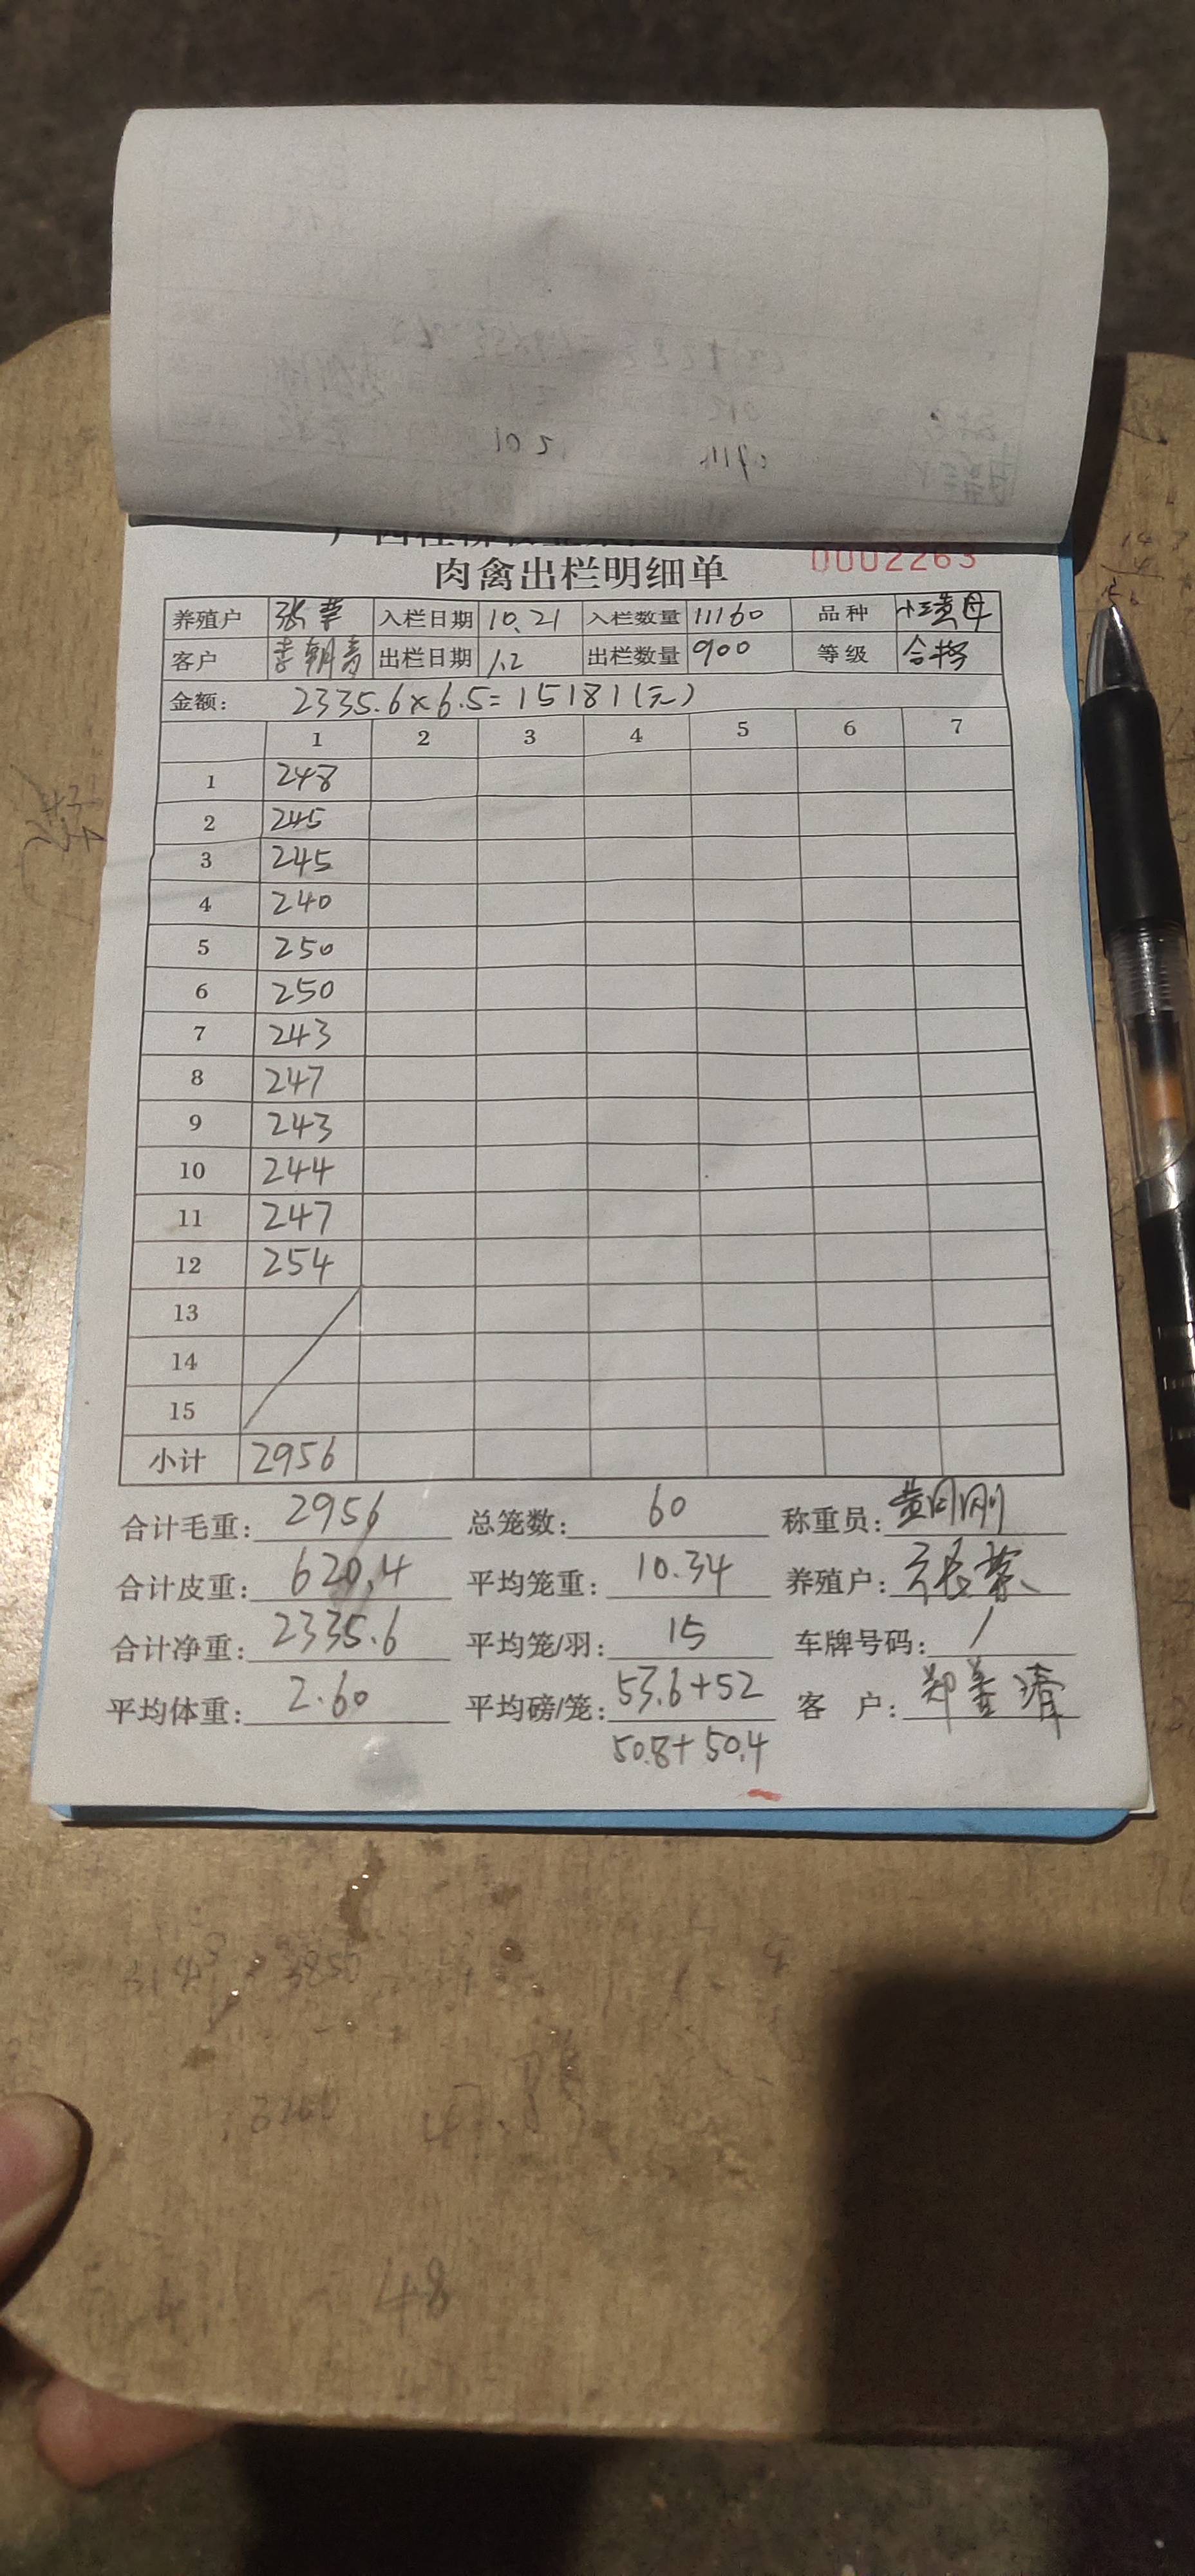 肉禽出栏明细单 0002263
养殖户 张荣 入栏日期 10.21 入栏数量 11160 品种 小三黄母
客户 李朝青 出栏日期 1.2 出栏数量 900 等级 合格
金额: 2335.6×6.5=15181(元)
1 2 3 4 5 6 7
1 248
2 245
3 245
4 240
5 250
6 250
7 243
8 247
9 243
10 244
11 247
12 254
13
14
15
小计 2956
合计毛重: 2956 总笼数: 60 称重员: 黄刚
合计皮重: 620.4 平均笼重: 10.34 养殖户: 张荣
合计净重: 2335.6 平均笼/羽: 15 车牌号码: /
平均体重: 2.60 平均磅/笼: 53.6+52 客 户:
50.8+50.4
48